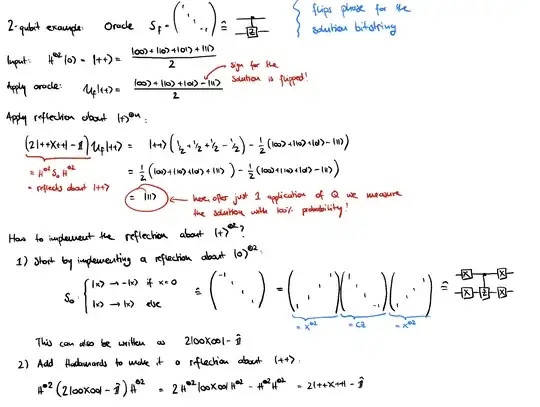 2-qubit example: Oracle S_f = ( 1 1 1 -1 ) ≙ Z
flips phase for the
solution bitstring
Input: H^⊗2 |0> = |++> = |00> + |10> + |01> + |11> / 2
sign for the
solution is flipped!
Apply oracle: U_f |++> = |00> + |10> + |01> - |11> / 2
Apply reflection about |+>^⊗n:
(2|++X++| - 𝟙) U_f |++> = |++> (1/2 + 1/2 + 1/2 - 1/2) - 1/2 (|00> + |10> + |01> - |11>)
= H^⊗2 S_0 H^⊗2
= reflects about |++>
= 1/2 (|00> + |10> + |01> + |11>) - 1/2 (|00> + |10> + |01> - |11>)
= |11> ← here, after just 1 application of Q we measure
the solution with 100% probability!
How to implement the reflection about |+>^⊗2?
1) Start by implementing a reflection about |0>^⊗2:
S_0: { |x> → -|x> if x=0
|x> → |x> else
≙ ( -1 1 1 1 ) = ( 1 1 1 1 ) ( 1 1 1 -1 ) ( 1 1 1 1 ) ≙ X X X Z X
= X^⊗2 = CZ = X^⊗2
This can also be written as 2|00X00| - 𝟙
2) Add Hadamards to make it a reflection about |++>:
H^⊗2 (2|00X00| - 𝟙) H^⊗2 = 2 H^⊗2 |00X00| H^⊗2 - H^⊗2 H^⊗2 = 2|++X++| - 𝟙